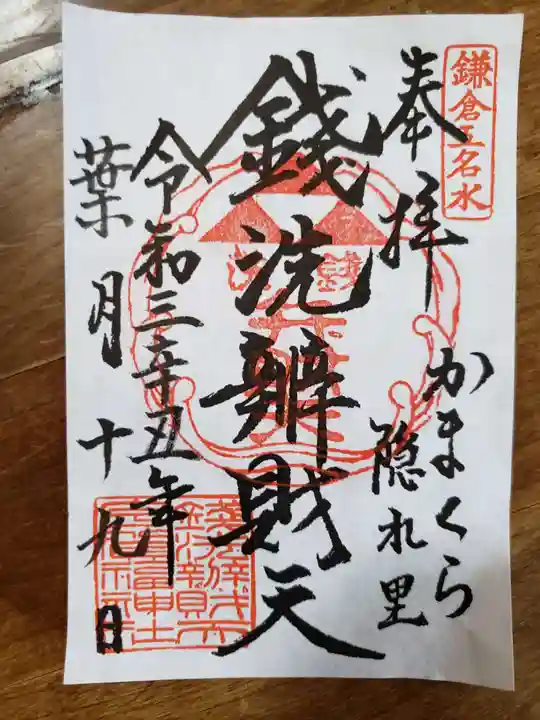 鎌倉五名水
奉拝
かまくら
隠れ里
銭洗辨財天
令和三辛丑年
葉月十九日